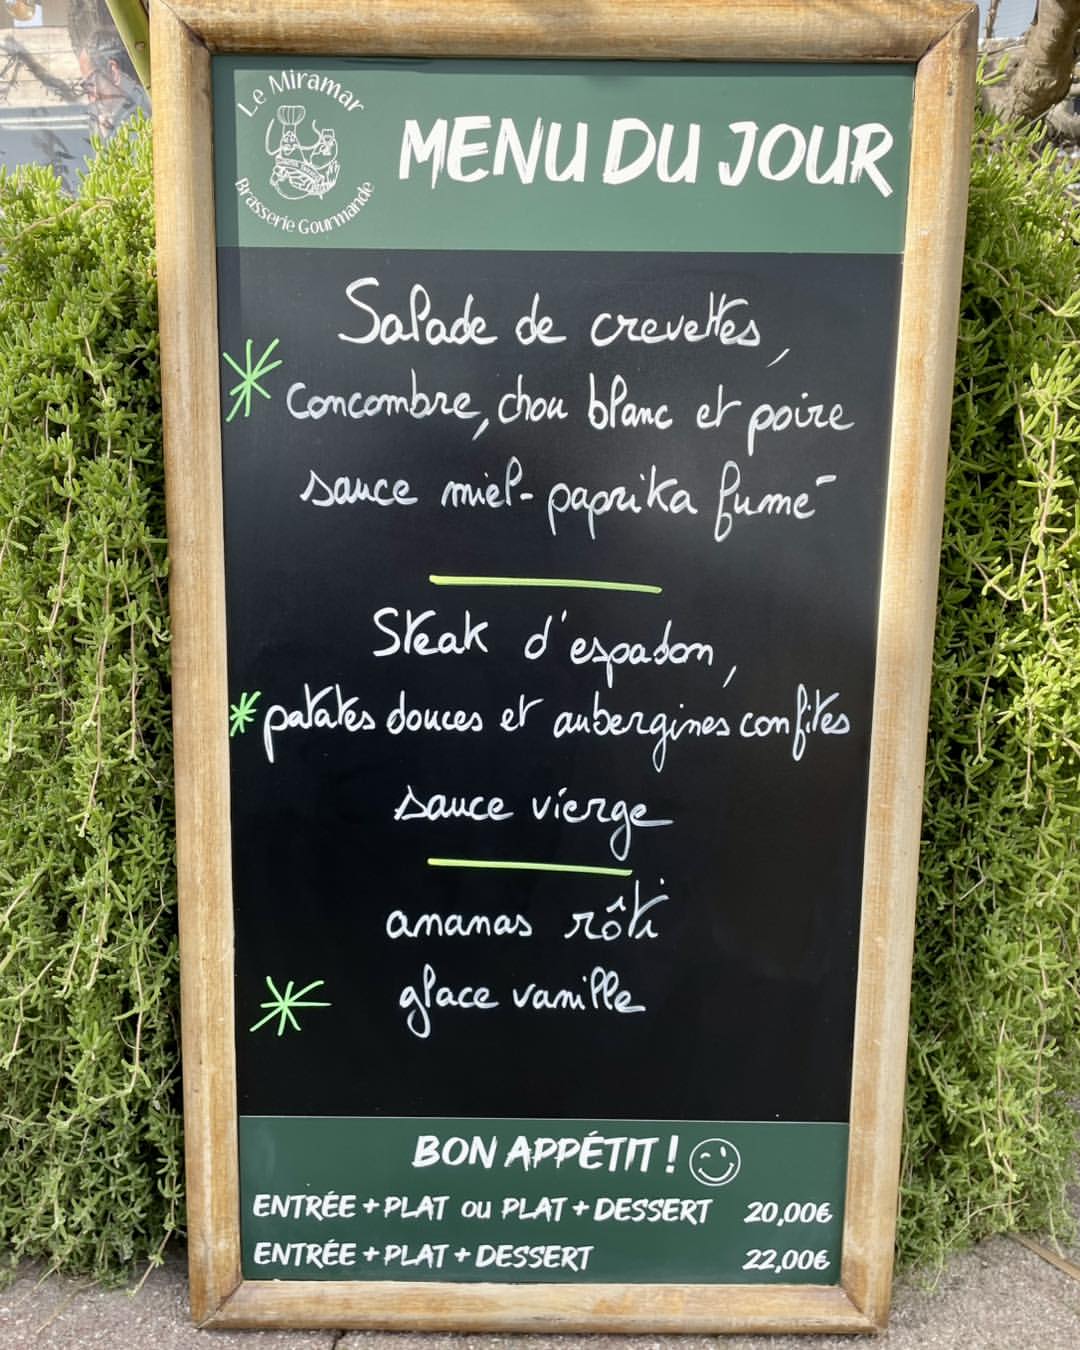 Le Miramar
Brasserie Gourmande
MENU DU JOUR
Salade de crevettes,
concombre, chou blanc et poire
sauce miel-paprika fumé
Steak d'espadon,
patates douces et aubergines confites
sauce vierge
ananas rôti
glace vanille
BON APPÉTIT !
ENTRÉE + PLAT OU PLAT + DESSERT 20,00€
ENTRÉE + PLAT + DESSERT 22,00€